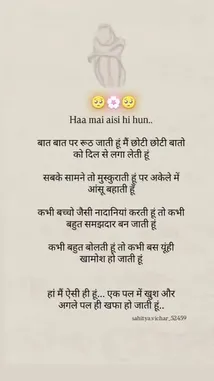 Haa mai aisi hi hun..
बात बात पर रूठ जाती हूं मैं छोटी छोटी बातो
को दिल से लगा लेती हूं
सबके सामने तो मुस्कुराती हूं पर अकेले में
आंसू बहाती हूँ
कभी बच्चो जैसी नादानियां करती हूं तो कभी
बहुत समझदार बन जाती हूं
कभी बहुत बोलती हूं तो कभी बस यूंही
खामोश हो जाती हूं
हां मैं ऐसी ही हूं... एक पल में खुश और
अगले पल ही खफा हो जाती हूं..
sahityavichar_52459